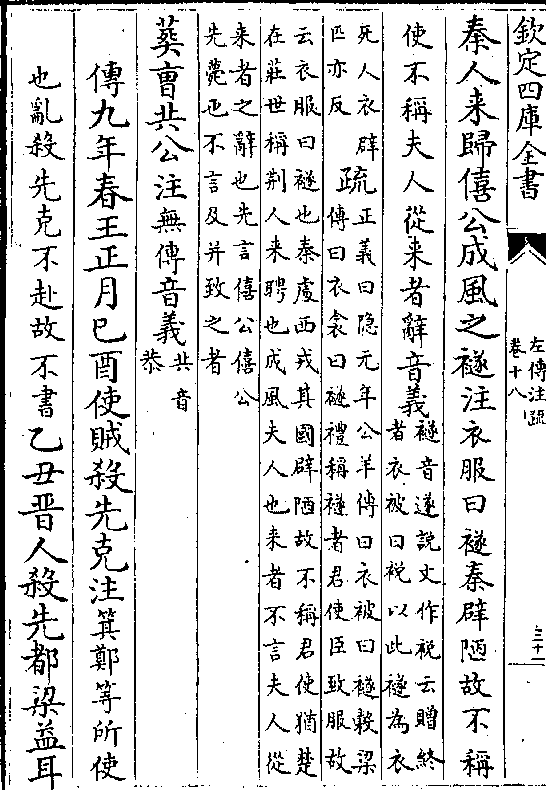 欽定四庫全書
左傳注疏
卷十八
三十一
秦人来歸僖公成風之襚注衣服曰襚秦辟陋故不稱
使不稱夫人從来者辭音義
襚音遂説文作裞云贈終
者衣被曰裞以此襚為衣
死人衣辟
匹亦反
疏
正義曰隐元年公羊傳曰衣被曰襚穀梁
傳曰衣衾曰襚禮稱襚者君使臣致服故
云衣服曰襚也秦處西戎其國辟陋故不稱君使猶楚
在莊世稱荆人来聘也成風夫人也来者不言夫人從
来者之辭也先言僖公僖公
先薨也不言及并致之者
葬曺共公注無傳音義
共音
恭
傳九年春王正月己酉使賊殺先克注箕鄭等所使
也亂殺先克不赴故不書乙丑晋人殺先都梁益耳